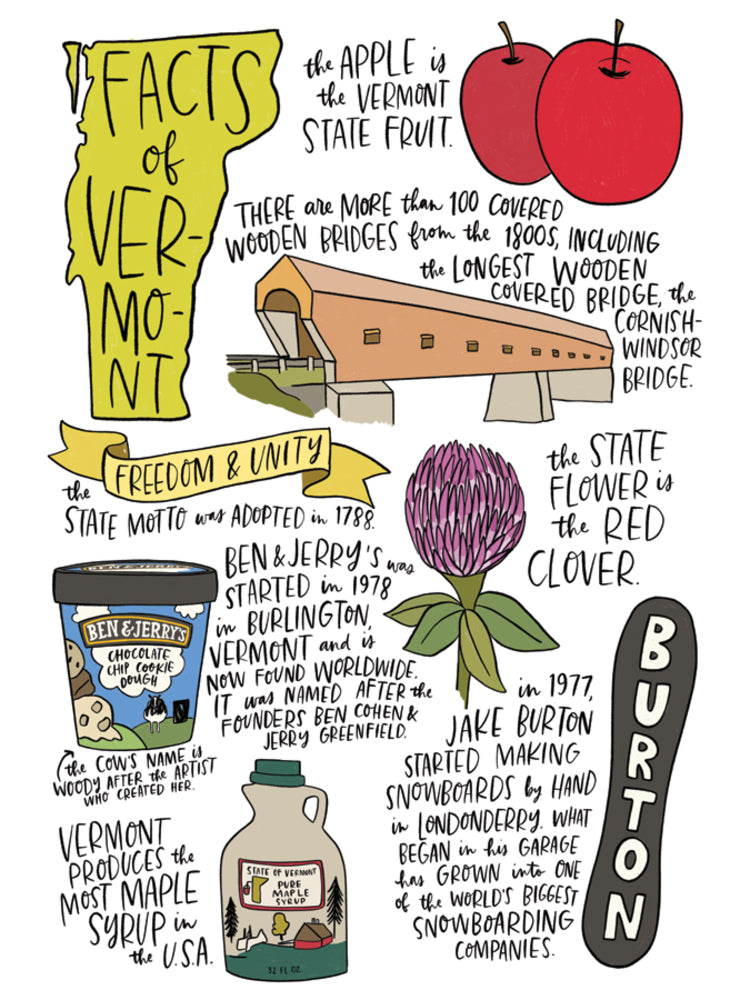 FACTS
of
VER-
MO-
NT
the APPLE is
the VERMONT
STATE FRUIT.
THERE are MORE than 100 COVERED
WOODEN BRIDGES from the 1800s, INCLUDING
the LONGEST WOODEN
COVERED BRIDGE, the
CORNISH-
WINDSOR
BRIDGE.
FREEDOM & UNITY
the
STATE MOTTO was ADOPTED in 1788.
the STATE
FLOWER is
the RED
CLOVER.
BEN & JERRY'S
BEN & JERRY'S
CHOCOLATE
CHIP COOKIE
DOUGH
the COW'S NAME is
WOODY AFTER the ARTIST
WHO CREATED HER.
BEN & JERRY'S was
STARTED in 1978
in BURLINGTON,
VERMONT and is
NOW FOUND WORLDWIDE.
IT was NAMED AFTER the
FOUNDERS BEN COHEN &
JERRY GREENFIELD.
in 1977,
JAKE BURTON
STARTED MAKING
SNOWBOARDS by HAND
in LONDONDERRY. WHAT
BEGAN in his GARAGE
has GROWN into ONE
of the WORLD'S BIGGEST
SNOWBOARDING
COMPANIES.
BURTON
VERMONT
PRODUCES the
MOST MAPLE
SYRUP in
the U.S.A.
STATE OF VERMONT
PURE
MAPLE
SYRUP
32 FL OZ